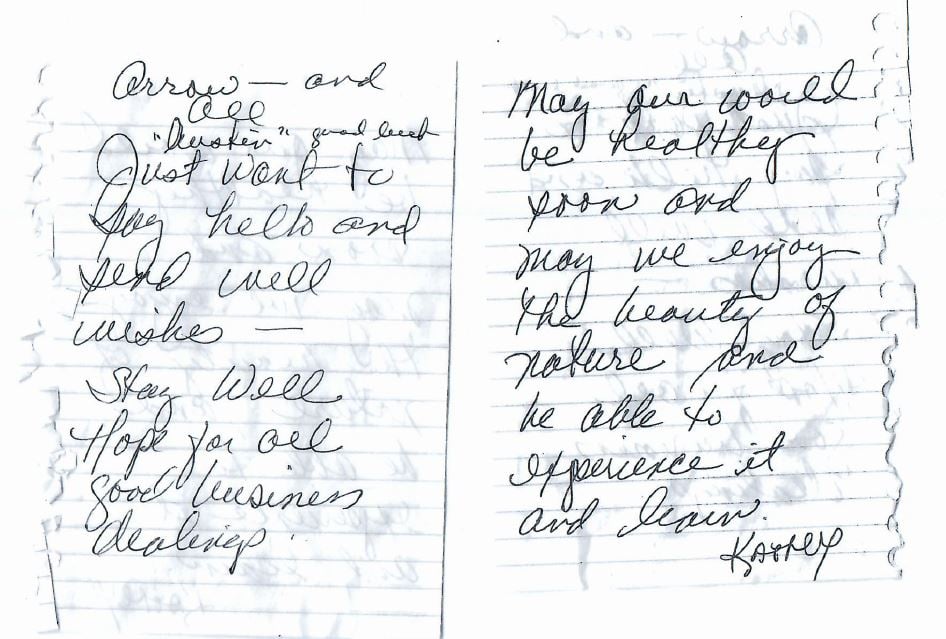 Arrow — and
all
"Austin" good luck
Just want to
say hello and
send well
wishes —
Stay Well
Hope for all
good business
dealings.
May our world
be healthy
soon and
may we enjoy
the beauty of
nature and
be able to
experience it
and learn.
Kathy